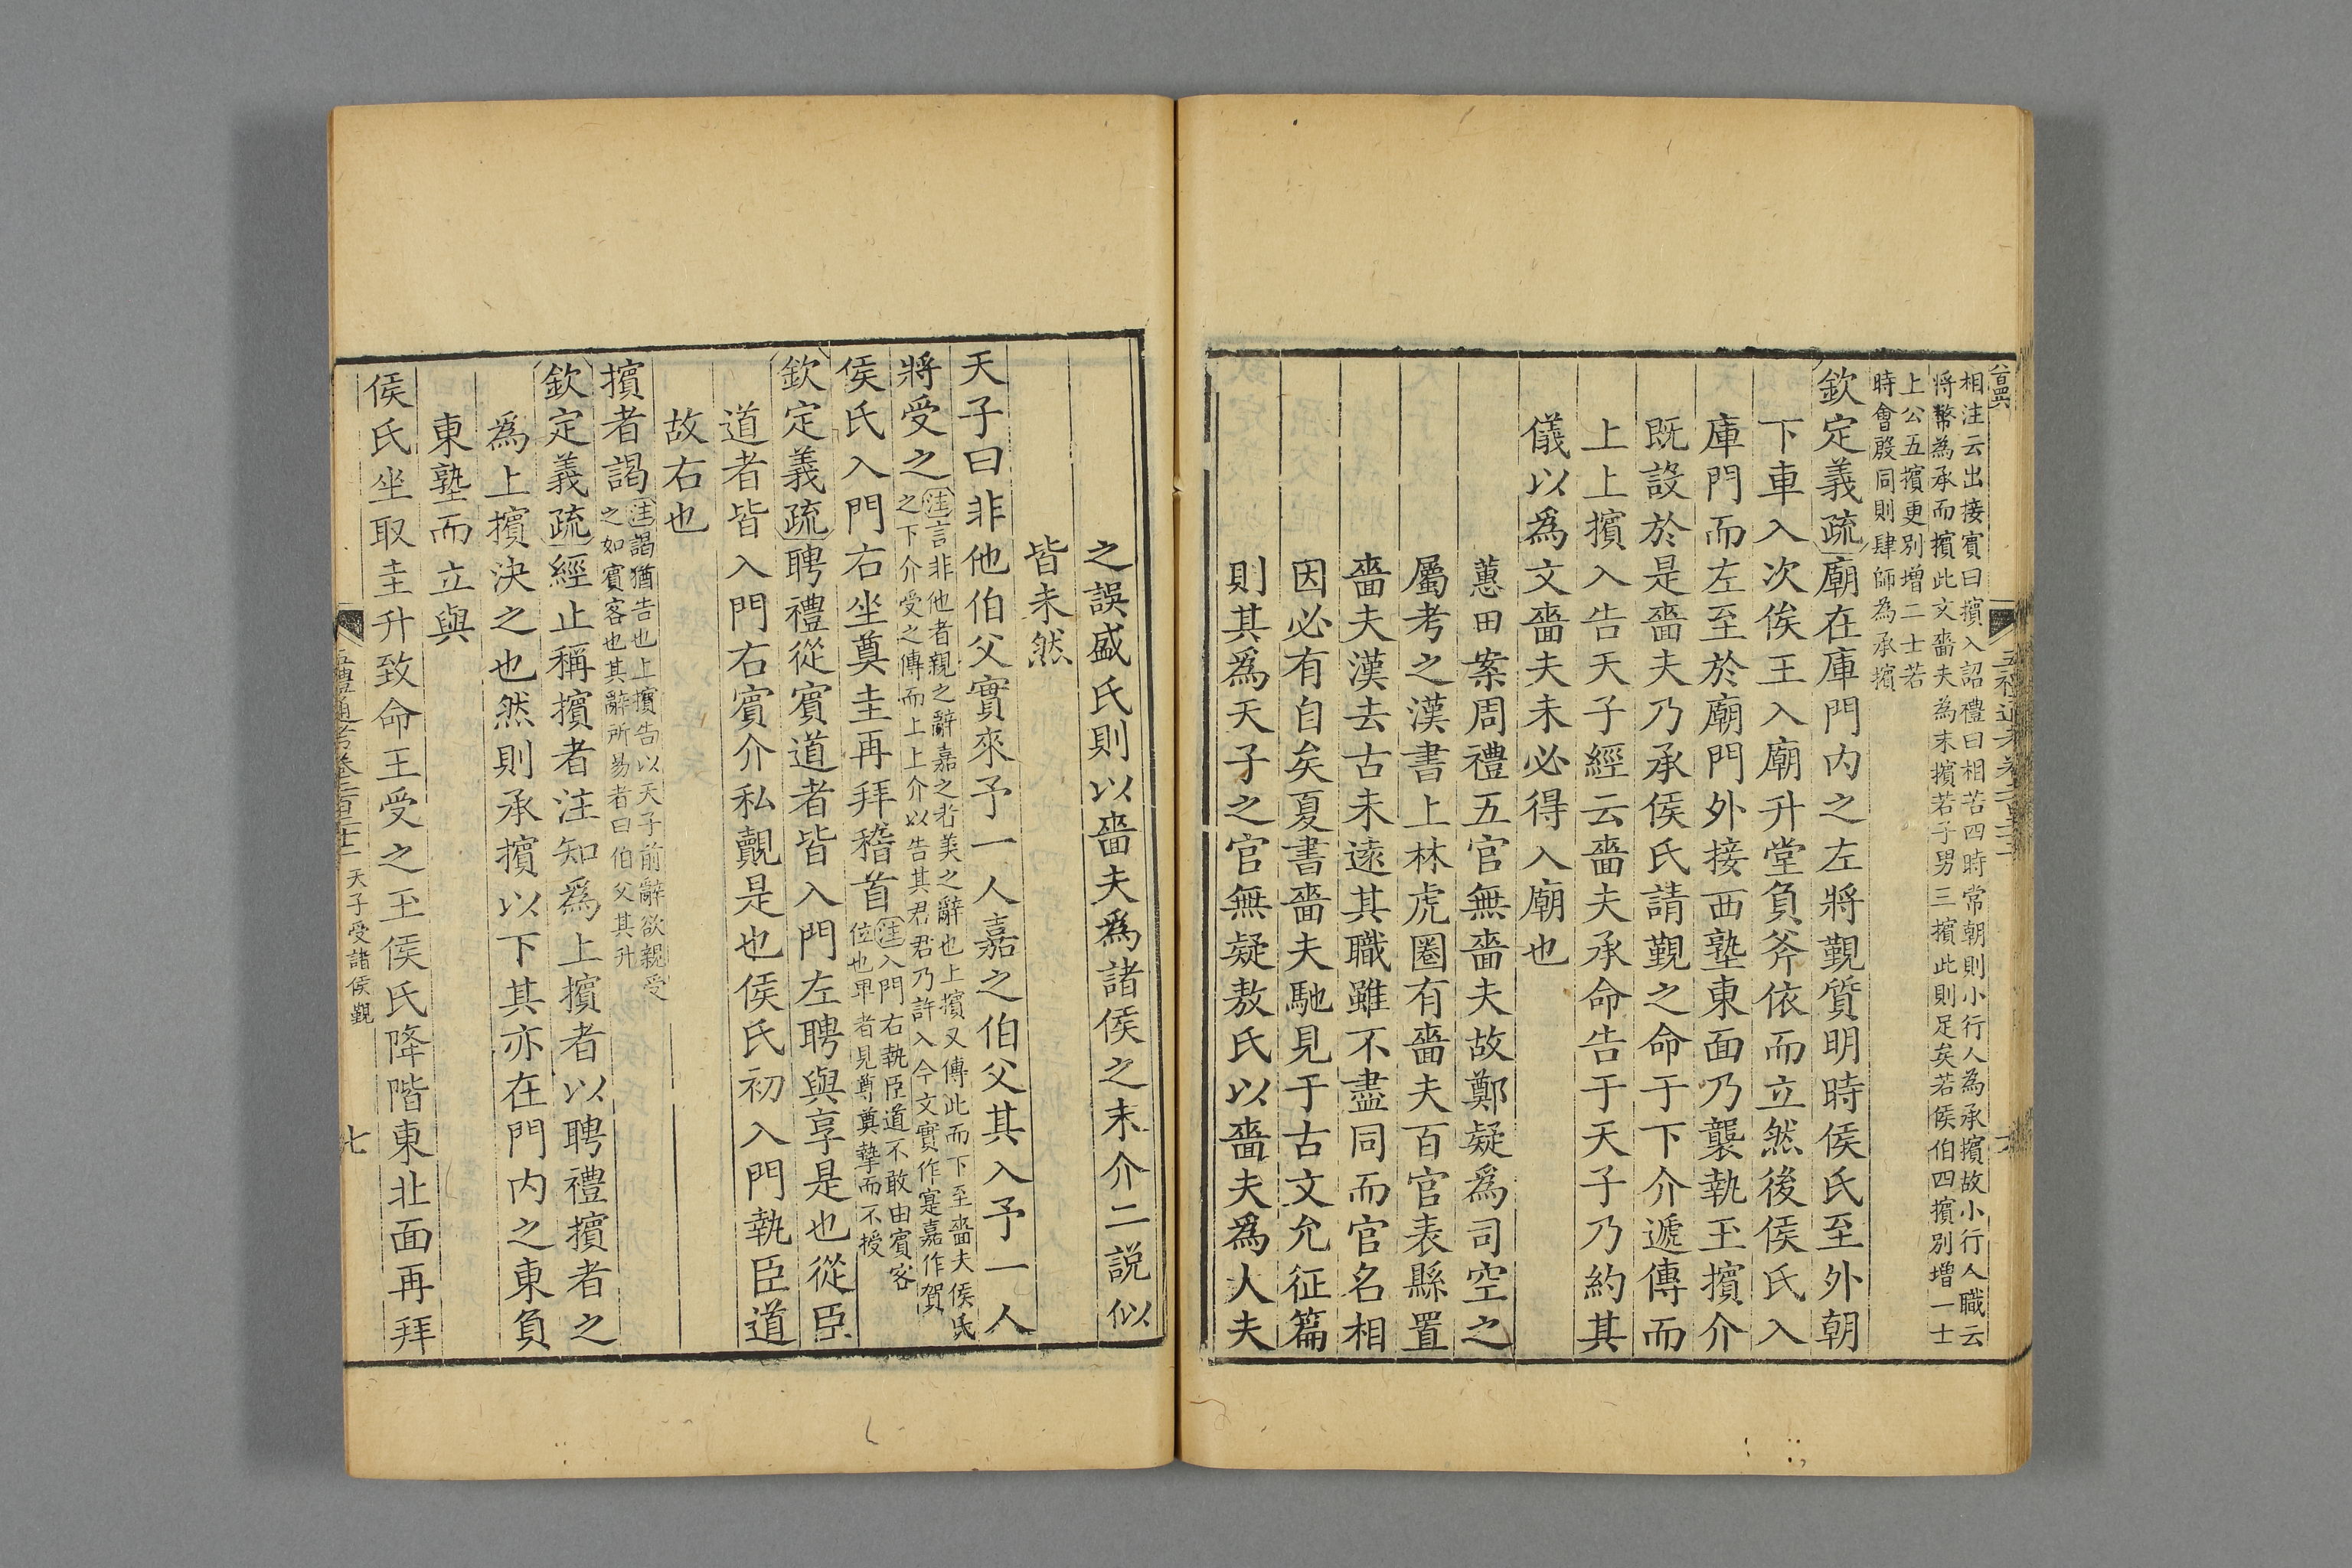 相注云出接賓曰擯入詔禮曰相若四時常朝則小行人為承擯故小行人職云
将幣為承而擯此文嗇夫為末擯若子男三擯此則足矣若侯伯四擯別增一士
上公五擯更別增二士若
時會殷同則肆師為承擯
欽定義疏廟在庫門内之左將覲質明時侯氏至外朝
下車入次俟王入廟升堂負斧依而立然後侯氏入
庫門而左至於廟門外接西塾東面乃襲執玉擯介
既設於是嗇夫乃承侯氏請覲之命于下介遞傳而
上上擯入告天子經云嗇夫承命告于天子乃約其
儀以爲文嗇夫未必得入廟也
蕙田案周禮五官無嗇夫故鄭疑爲司空之
屬考之漢書上林虎圈有嗇夫百官表縣置
嗇夫漢去古未遠其職雖不盡同而官名相
因必有自矣夏書嗇夫馳見于古文允征篇
則其爲天子之官無疑敖氏以嗇夫爲人夫
之誤盛氏則以嗇夫爲諸侯之末介二説似
皆未然
天子曰非他伯父實來予一人嘉之伯父其入予一人
將受之
注言非他者親之辭嘉之者美之辭也上擯又傳此而下至嗇夫侯氏
之下介受之傳而上上介以告其君君乃許入今文實作寔嘉作賀
侯氏入門右坐奠圭再拜稽首
注入門右執臣道不敢由賓客
位也卑者見尊奠摯而不授
欽定義疏聘禮從賓道者皆入門左聘與享是也從臣
道者皆入門右賓介私覿是也侯氏初入門執臣道
故右也
擯者謁
注謁猶告也上擯告以天子前辭欲親受
之如賓客也其辭所易者曰伯父其升
欽定義疏經止稱擯者注知爲上擯者以聘禮擯者之
爲上擯決之也然則承擯以下其亦在門内之東負
東塾而立與
侯氏坐取圭升致命王受之玉侯氏降階東北面再拜
五禮通考卷二百二十一 天子受諸侯覲 七